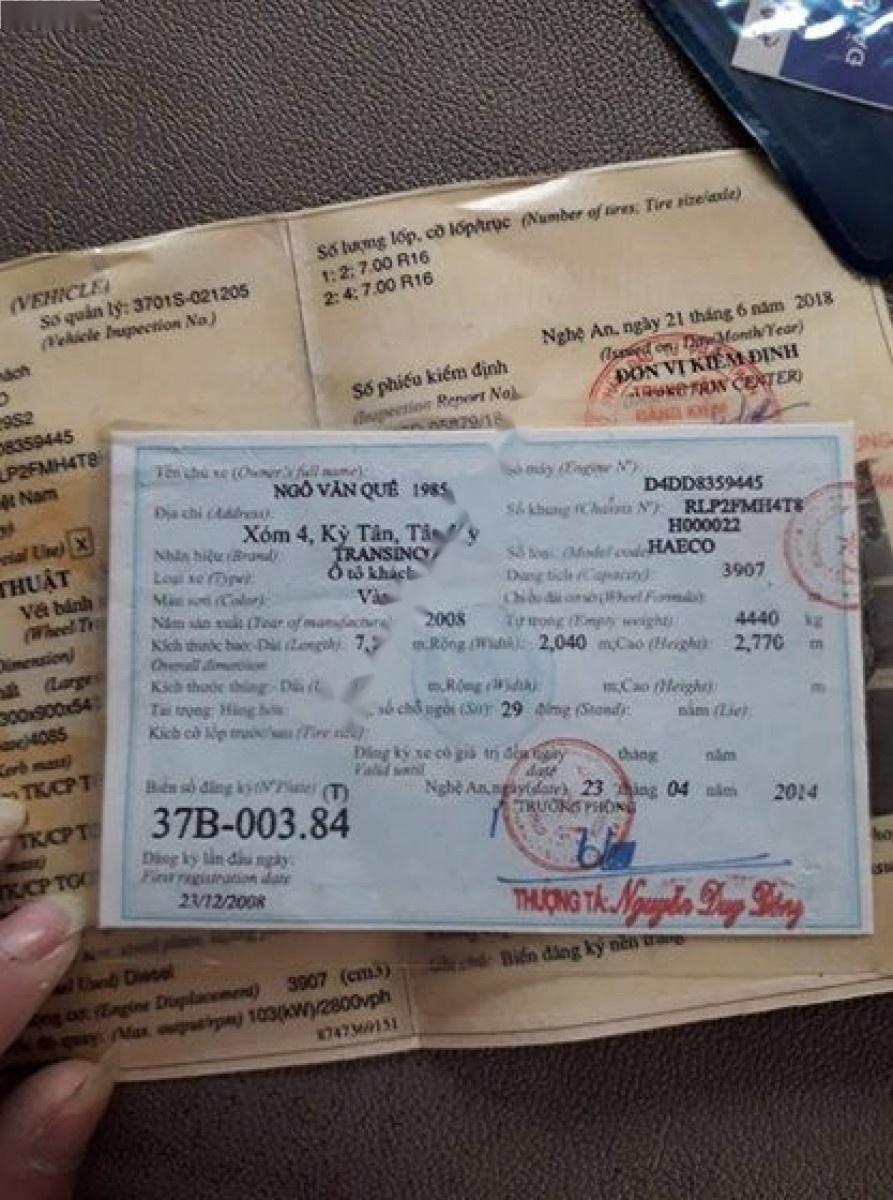 Số lượng lốp, cỡ lốp/trục (Number of tires; Tire size/axle)
1: 2; 7.00 R16
2: 4; 7.00 R16
(VEHICLE)
Số quản lý: 3701S-021205
(Vehicle Inspection No.)
Nghệ An, ngày 21 tháng 6 năm 2018
(Issued on: Day/Month/Year)
ĐƠN VỊ KIỂM ĐỊNH
Số phiếu kiểm định
(Inspection Report No)
29S2
08359445
LP2FMH4T8
ệt Nam
cial Use) X
THUẬT
Vết bánh
(Wheel Tr
Dimension)
(Large
)4085
TK/CP T
TK/CP T
TK/CP TGO
Tên chủ xe (Owner's full name):
NGÔ VĂN QUẾ 1985
Địa chỉ (Address):
Xóm 4, Kỳ Tân, Tân Kỳ
Nhãn hiệu (Brand): TRANSINCO
Loại xe (Type): Ô tô khách
Màu sơn (Color): Và
Năm sản xuất (Year of manufacture): 2008
Kích thước bao: Dài (Length): 7, m; Rộng (Width): 2,040 m; Cao (Height): 2,770 m
Overall dimension
Kích thước thùng - Dài (L m; Rộng (Width): m; Cao (Height): m
Tải trọng: Hàng hóa: , số chỗ ngồi (Sit): 29 đứng (Stand): nằm (Lie):
Kích cỡ lốp trước/sau (Tire size):
Số máy (Engine N°):
D4DD8359445
Số khung (Chassis N°): RLP2FMH4T8
H000022
Số loại (Model code): HAECO
Dung tích (Capacity): 3907
Chiều dài cơ sở (Wheel Formula): m
Tự trọng (Empty weight): 4440 kg
Đăng ký xe có giá trị đến ngày tháng năm
Valid until date
Biển số đăng ký (N° Plate) (T)
37B-003.84
Nghệ An, ngày (date) 23 tháng 04 năm 2014
TRƯỞNG PHÒNG
Đăng ký lần đầu ngày:
First registration date
23/12/2008
THƯỢNG TÁ: Nguyễn Duy Đông
Ghi chú: Biển đăng ký nền trắng
Used) Diesel
(Engine Displacement) 3907 (cm3)
(Max. output/rpm) 103(kW)/2800vph
8747369151